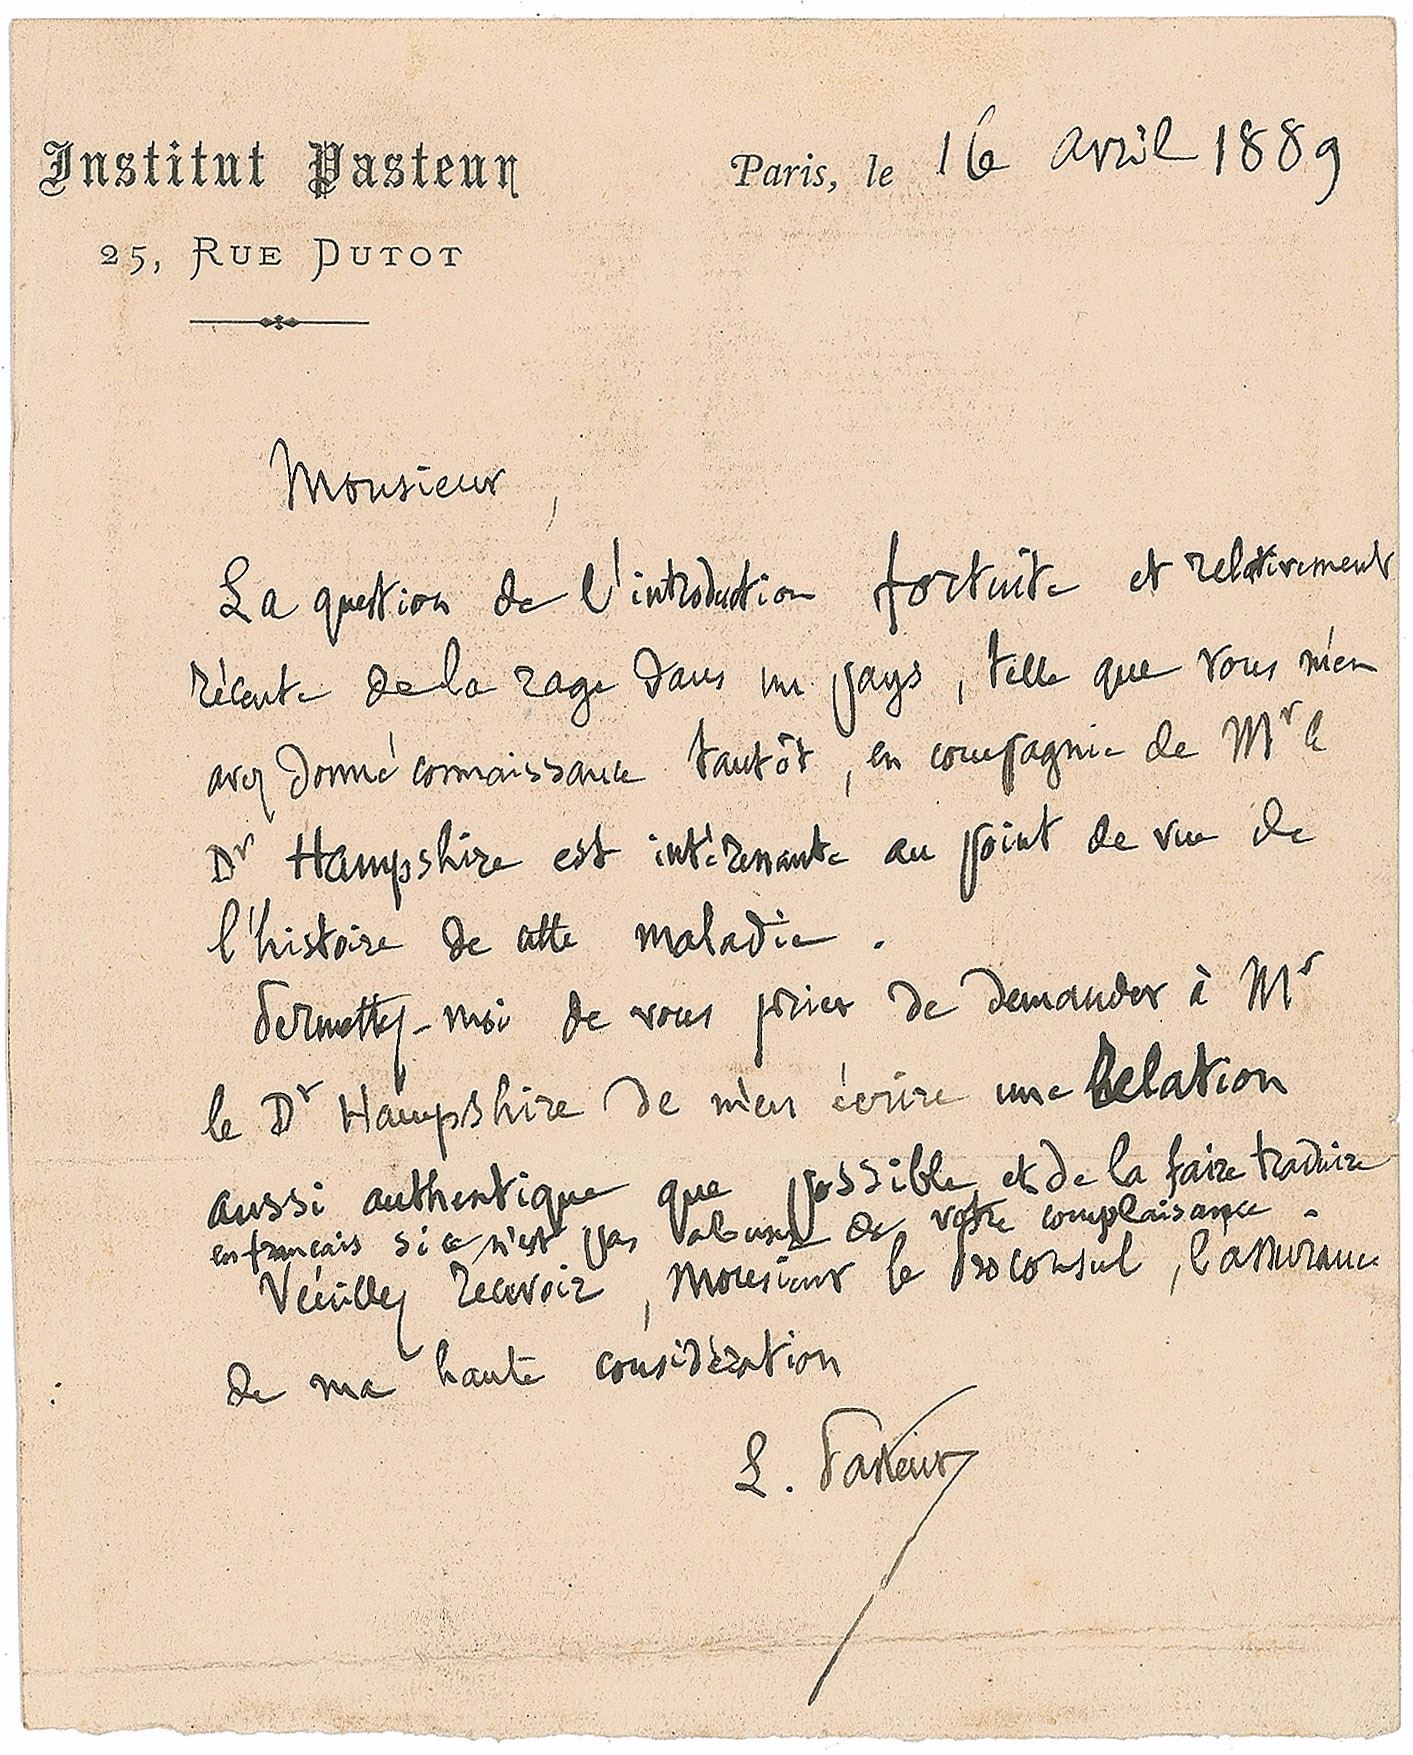 Institut Pasteur
25, RUE DUTOT
Paris, le 16 avril 1889
Monsieur,
La question de l'introduction fortuite et relativement
récente de la rage dans un pays, telle que vous m'en
avez donné connaissance tantôt, en compagnie de Mr le
Dr Hampshire est intéressante au point de vue de
l'histoire de cette maladie.
Permettez-moi de vous prier de demander à Mr
le Dr Hampshire de m'en écrire une Relation
aussi authentique que possible et de la faire traduire
en français si ce n'est pas abuser de votre complaisance.
Veuillez recevoir, Monsieur le Proconsul, l'assurance
de ma haute considération
L. Pasteur